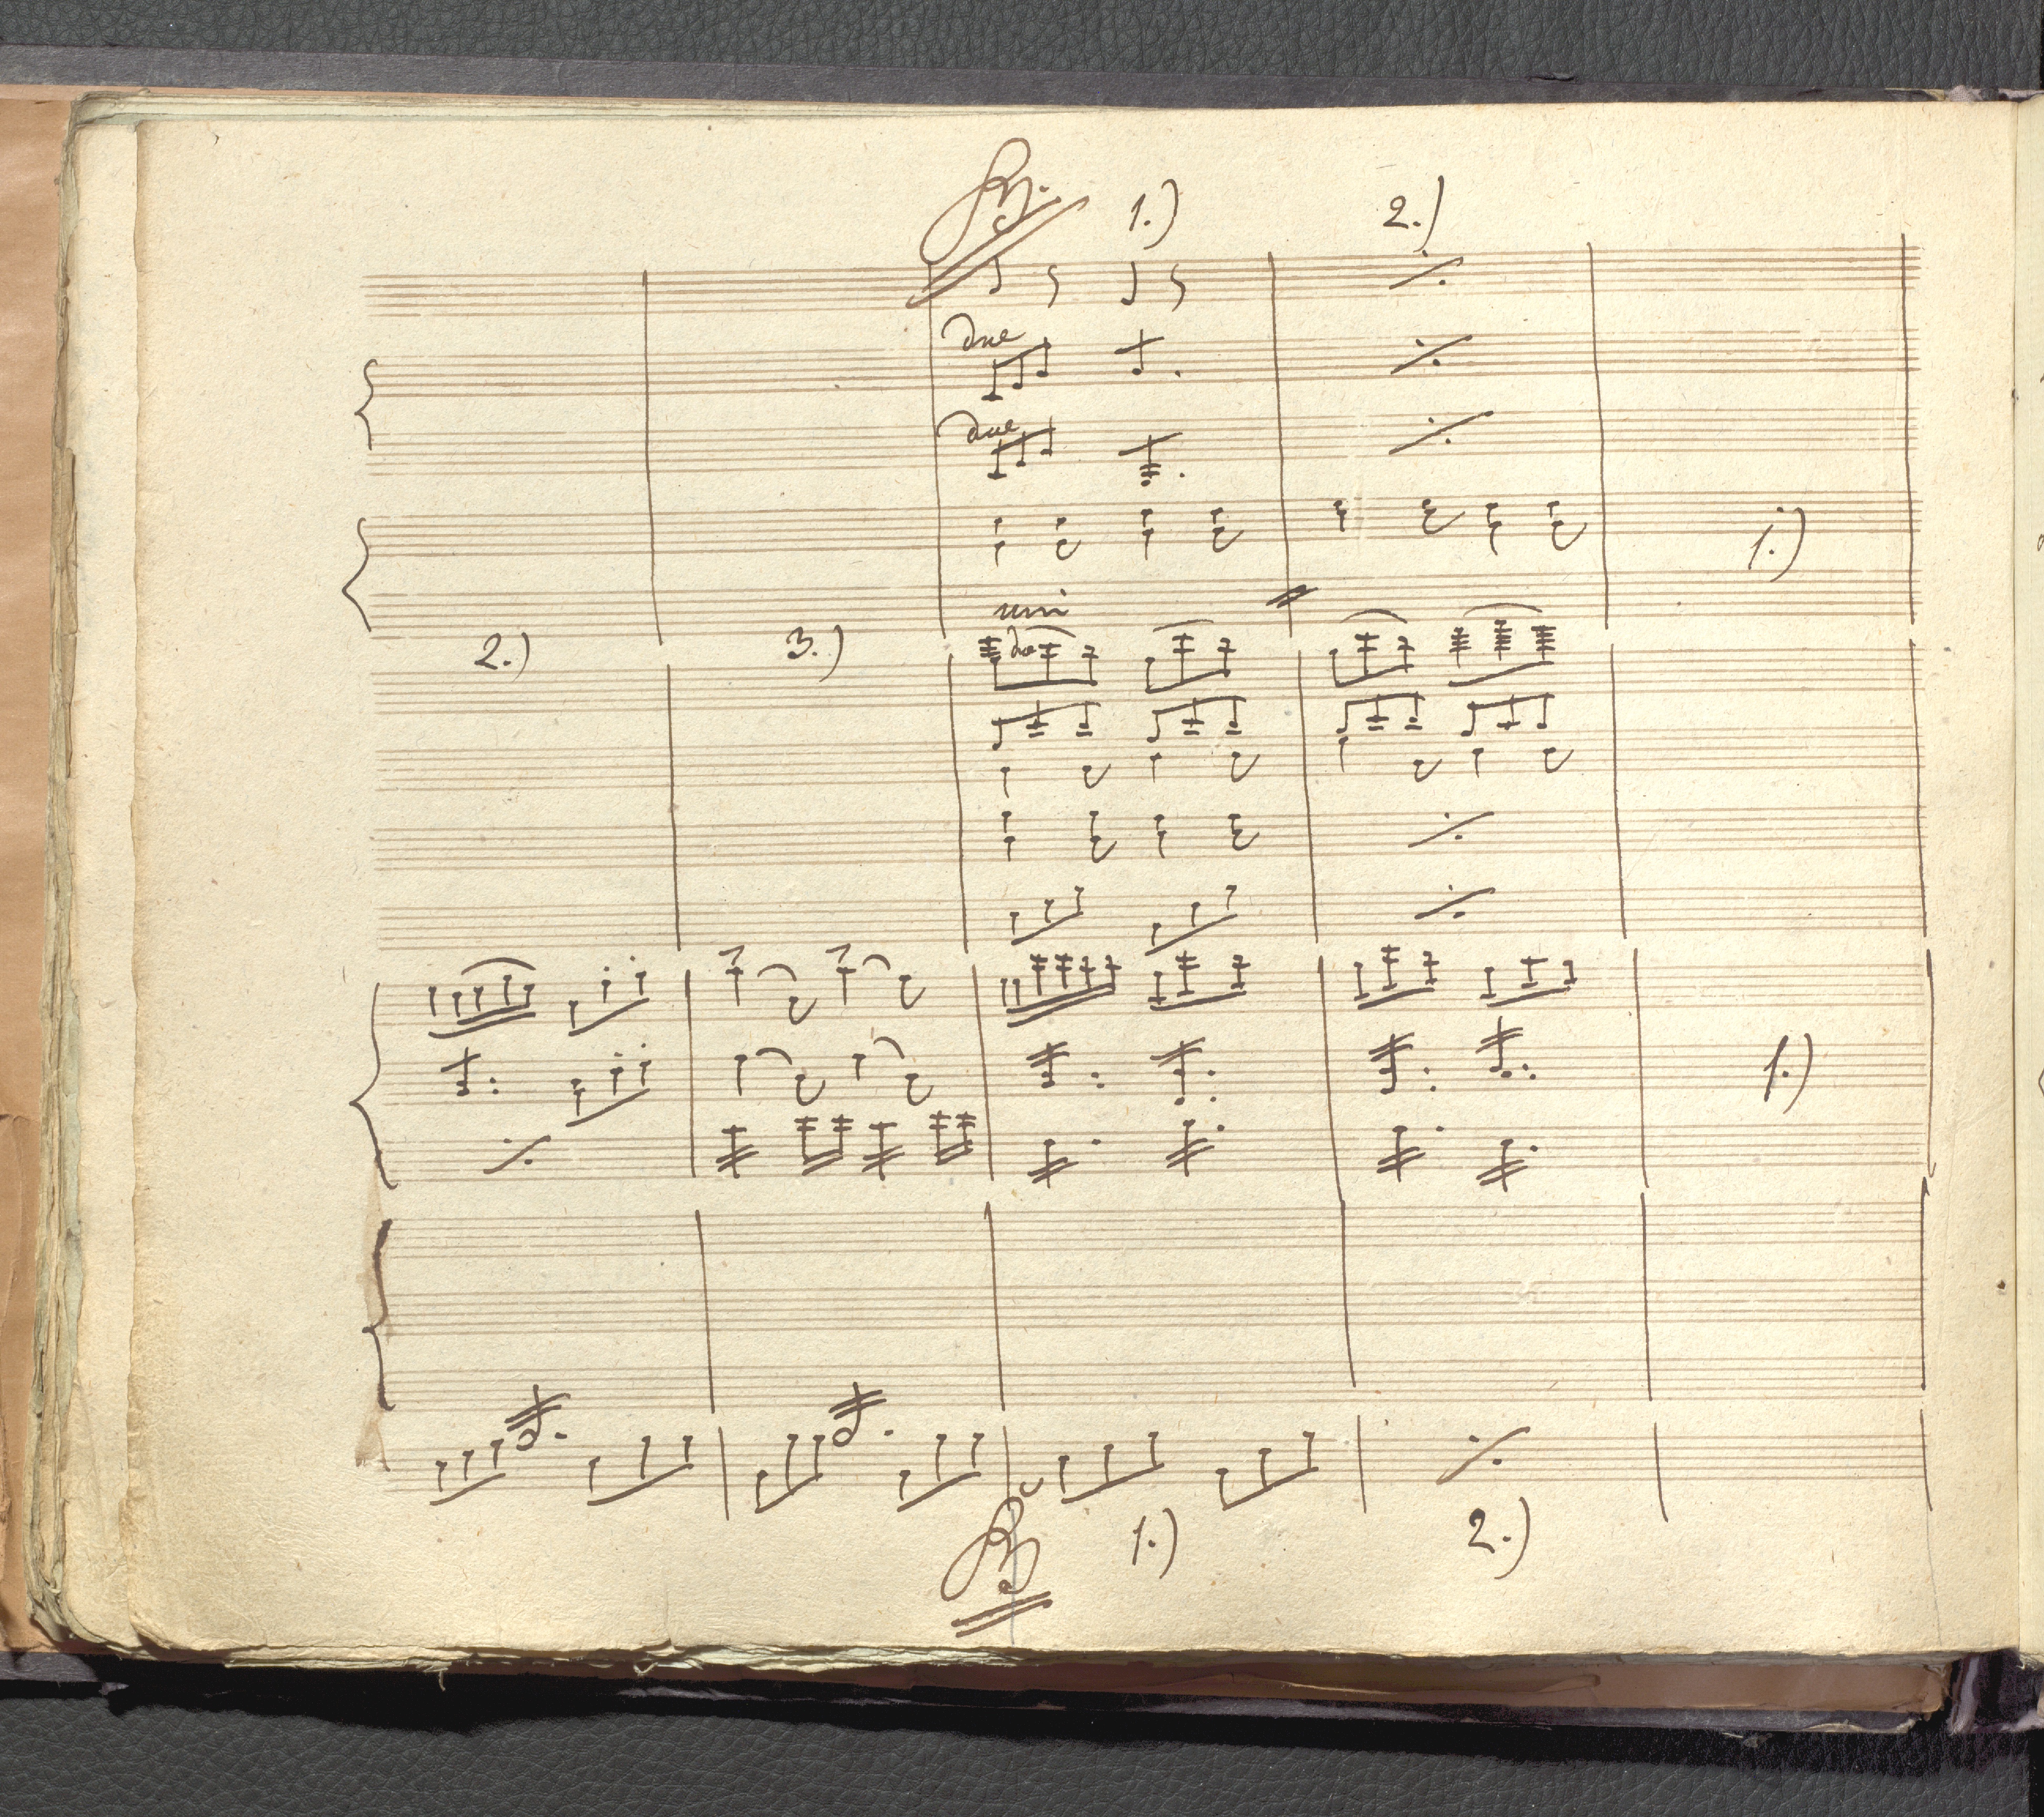 B. 1.) 2.)
due
due
1.)
uni
2.) 3.)
1.)
B 1.) 2.)